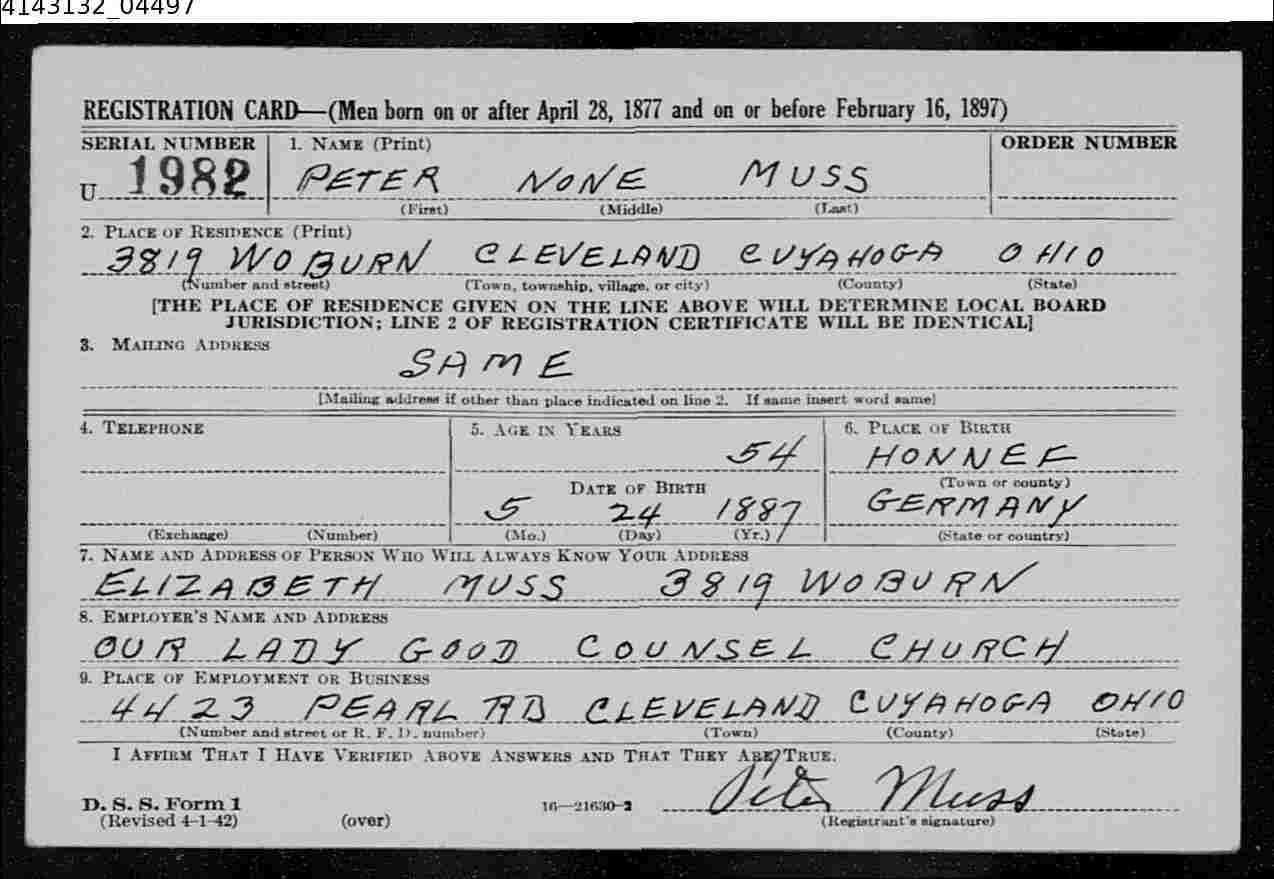 4143132_04497
REGISTRATION CARD—(Men born on or after April 28, 1877 and on or before February 16, 1897)
SERIAL NUMBER 1. NAME (Print) ORDER NUMBER
U 1982 PETER NONE MUSS
(First) (Middle) (Last)
2. PLACE OF RESIDENCE (Print)
3819 WOBURN CLEVELAND CUYAHOGA OHIO
(Number and street) (Town, township, village, or city) (County) (State)
[THE PLACE OF RESIDENCE GIVEN ON THE LINE ABOVE WILL DETERMINE LOCAL BOARD
JURISDICTION; LINE 2 OF REGISTRATION CERTIFICATE WILL BE IDENTICAL]
3. MAILING ADDRESS
SAME
[Mailing address if other than place indicated on line 2. If same insert word same]
4. TELEPHONE 5. AGE IN YEARS 6. PLACE OF BIRTH
54 HONNEF
DATE OF BIRTH (Town or county)
5 24 1887 GERMANY
(Exchange) (Number) (Mo.) (Day) (Yr.) (State or country)
7. NAME AND ADDRESS OF PERSON WHO WILL ALWAYS KNOW YOUR ADDRESS
ELIZABETH MUSS 3819 WOBURN
8. EMPLOYER'S NAME AND ADDRESS
OUR LADY GOOD COUNSEL CHURCH
9. PLACE OF EMPLOYMENT OR BUSINESS
4423 PEARL RD CLEVELAND CUYAHOGA OHIO
(Number and street or R. F. D. number) (Town) (County) (State)
I AFFIRM THAT I HAVE VERIFIED ABOVE ANSWERS AND THAT THEY ARE TRUE.
Peter Muss
D. S. S. Form 1 16—21630-2
(Revised 4-1-42) (over) (Registrant's signature)